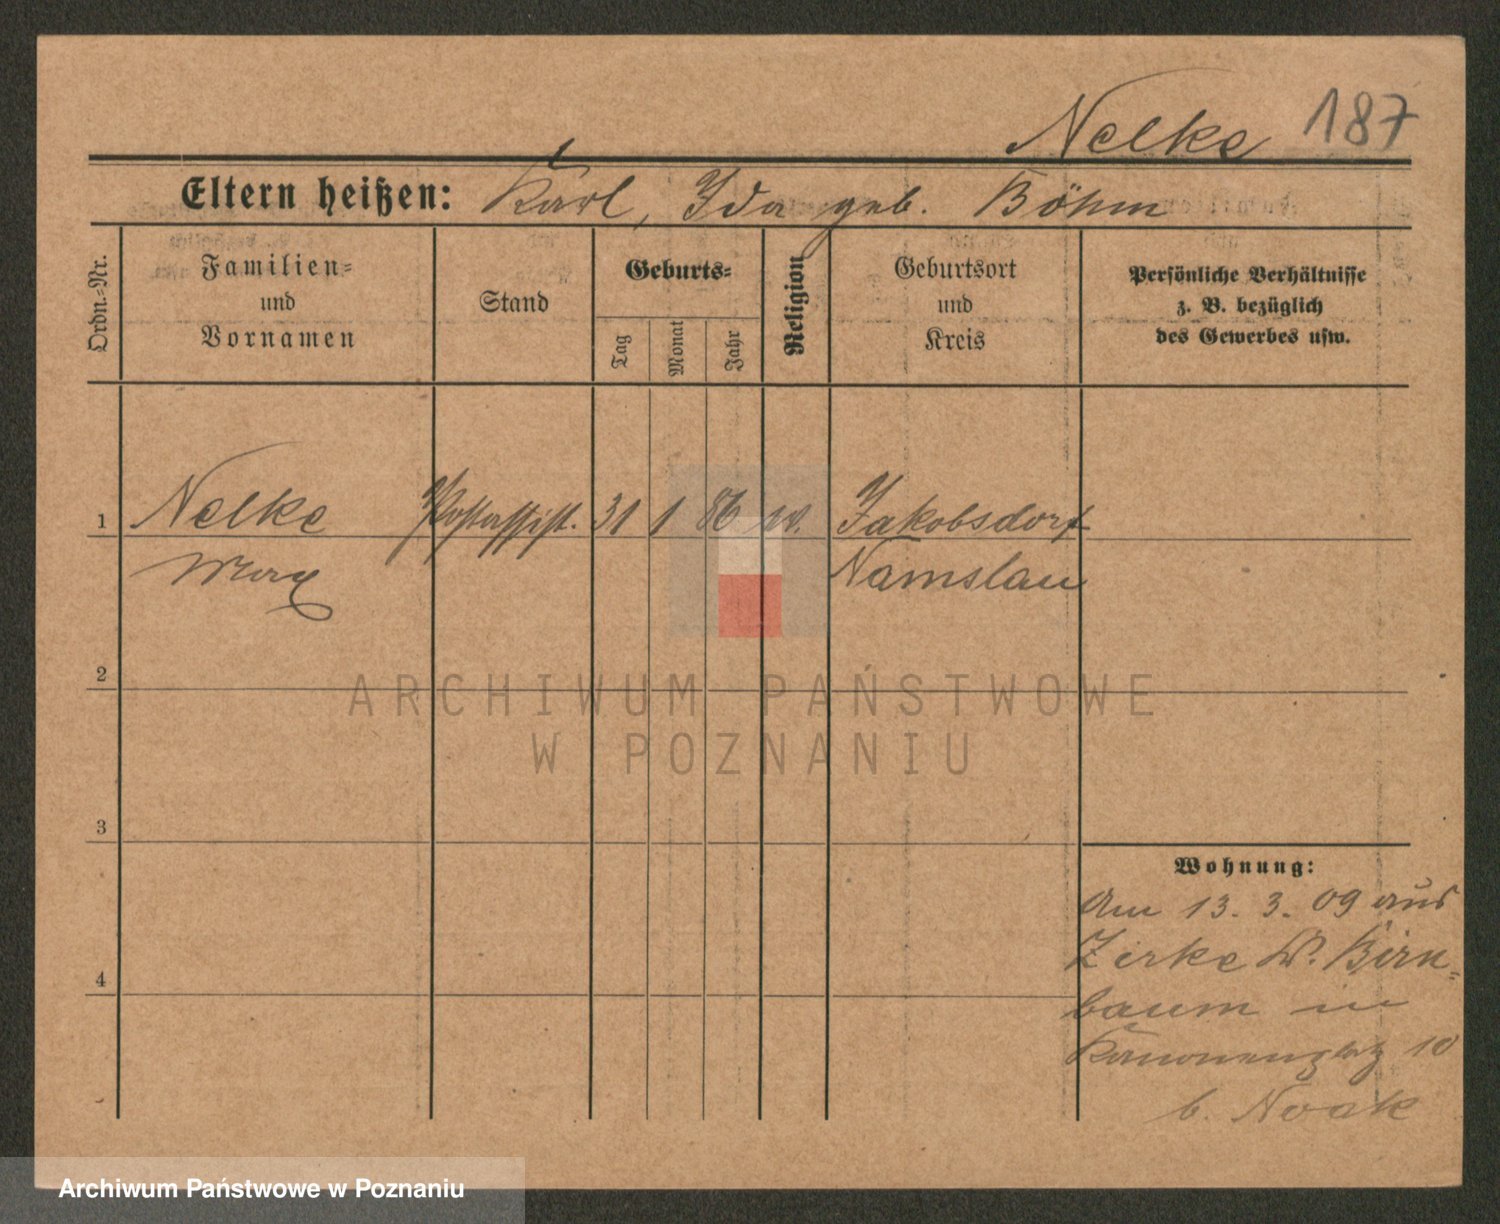 Nelke 187
Eltern heißen: Karl, Ida geb. Böhm
Ordn.-Nr.
Familien-
und
Vornamen
Stand
Geburts-
Tag
Monat
Jahr
Religion
Geburtsort
und
Kreis
Persönliche Verhältnisse
z. B. bezüglich
des Gewerbes usw.
1 Nelke Postassist. 31 1 86 ev. Jakobsdorf
Max Namslau
2
ARCHIWUM PAŃSTWOWE
W POZNANIU
3
Wohnung:
Am 13. 3. 09 aus
Zirke Kr. Birn-
4
baum in
Kanonenplatz 10
b. Noak
Archiwum Państwowe w Poznaniu